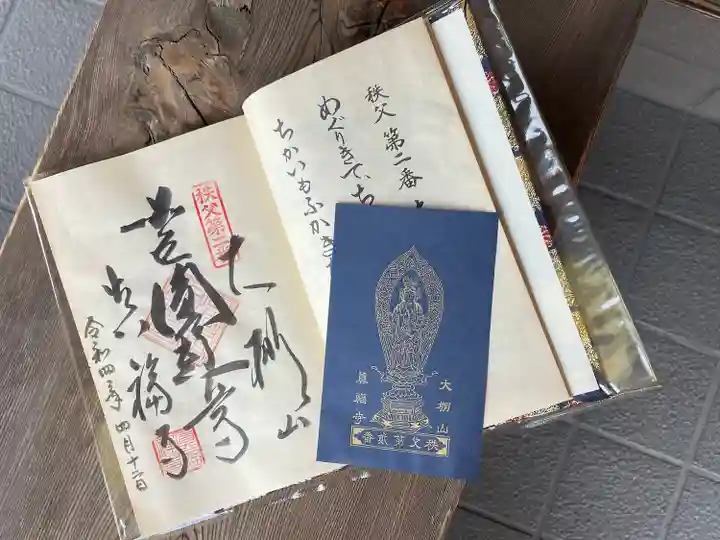 秩父 第二番
めぐりきて、ち
ちかいもふかき
秩父第二番
大棚山
真福寺
令和四年 四月十二日
大棚山
眞福寺
秩父第貳番